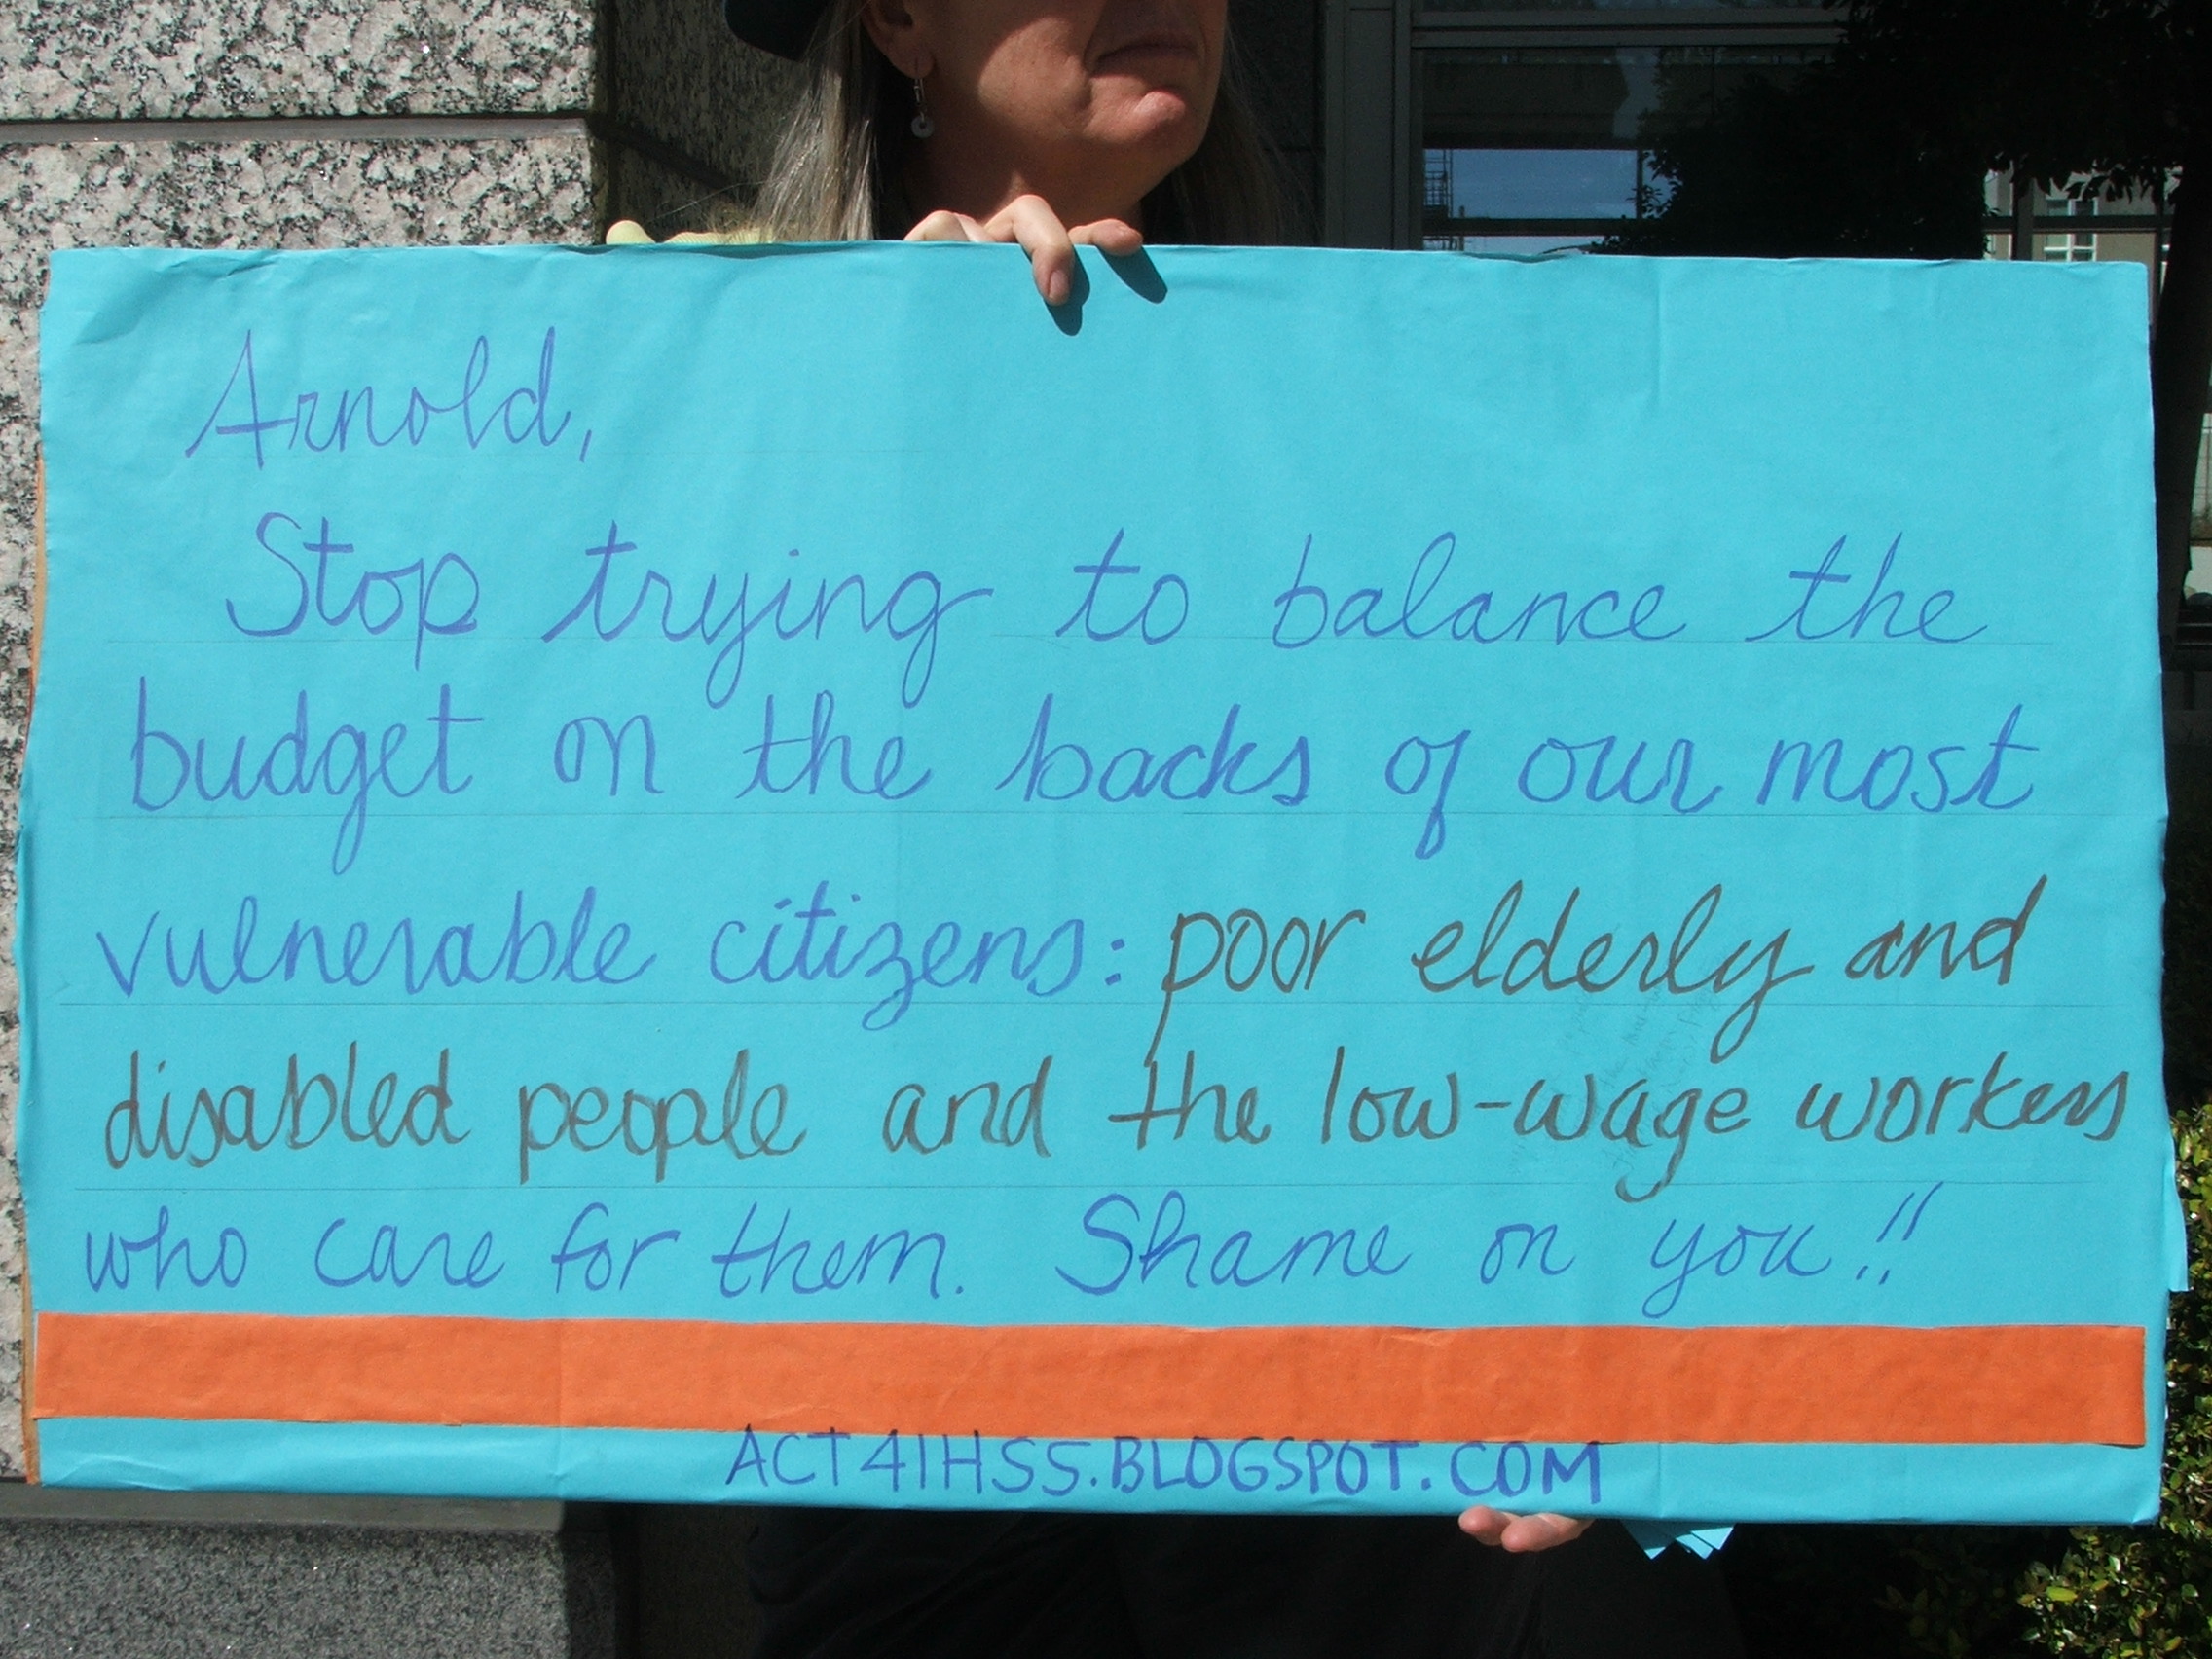 Arnold,
Stop trying to balance the
budget on the backs of our most
vulnerable citizens: poor elderly and
disabled people and the low-wage workers
who care for them. Shame on you!!
ACT4IHSS.BLOGSPOT.COM